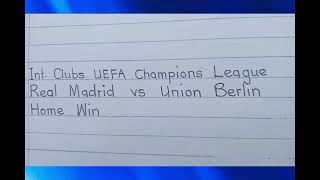 Int. Clubs UEFA Champions League
Real Madrid vs Union Berlin
Home Win